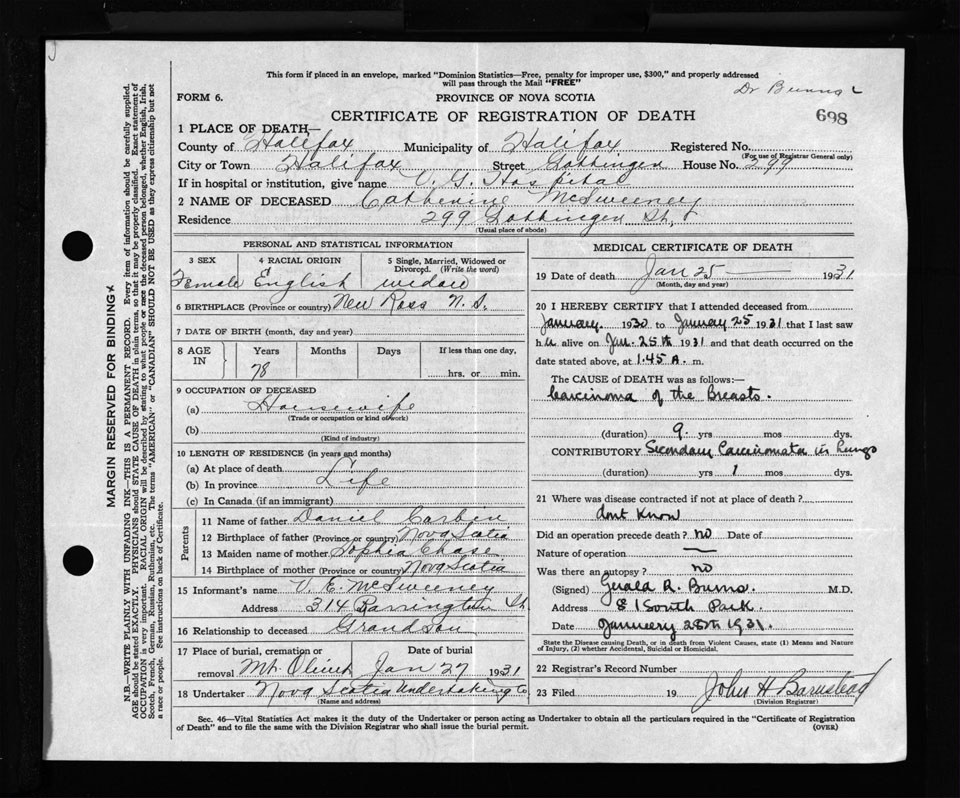 This form if placed in an envelope, marked "Dominion Statistics—Free, penalty for improper use, $300," and properly addressed
will pass through the Mail "FREE"
Dr Burns
FORM 6.
PROVINCE OF NOVA SCOTIA
CERTIFICATE OF REGISTRATION OF DEATH
698
1 PLACE OF DEATH—
County of Halifax Municipality of Halifax Registered No.
(For use of Registrar General only)
City or Town Halifax Street Gottingen House No. 299
If in hospital or institution, give name V. G. Hospital
2 NAME OF DECEASED Catherine McSweeney
Residence 299 Gottingen St,
(Usual place of abode)
PERSONAL AND STATISTICAL INFORMATION
3 SEX 4 RACIAL ORIGIN 5 Single, Married, Widowed or
Divorced. (Write the word)
Female English widow
6 BIRTHPLACE (Province or country) New Ross N. S.
7 DATE OF BIRTH (month, day and year)
8 AGE IN Years Months Days If less than one day,
78 hrs. or min.
9 OCCUPATION OF DECEASED
(a) Housewife
(Trade or occupation or kind of work)
(b)
(Kind of industry)
10 LENGTH OF RESIDENCE (in years and months)
(a) At place of death
(b) In province Life
(c) In Canada (if an immigrant)
Parents
11 Name of father Daniel
12 Birthplace of father (Province or country) Nova Scotia
13 Maiden name of mother Sophia Chase
14 Birthplace of mother (Province or country) Nova Scotia
15 Informant's name V. E. McSweeney
Address 314 Barrington St.
16 Relationship to deceased Grandson
17 Place of burial, cremation or Date of burial
removal Mt. Olivet Jan 27 1931
18 Undertaker Nova Scotia Undertaking Co
(Name and address)
MEDICAL CERTIFICATE OF DEATH
19 Date of death Jan 25 — 1931
(Month, day and year)
20 I HEREBY CERTIFY that I attended deceased from
January. 1930 to January 25 1931 that I last saw
her alive on Jan. 25th 1931 and that death occurred on the
date stated above, at 1.45 A. m.
The CAUSE OF DEATH was as follows:—
Carcinoma of the Breasts.
(duration) 9 yrs mos dys.
CONTRIBUTORY Secondary Carcinomata in lungs
(duration) 1 yrs mos dys.
21 Where was disease contracted if not at place of death?
dont know
Did an operation precede death? no Date of
Nature of operation —
Was there an autopsy? no
(Signed) Gerald R. Burns. M.D.
Address 81 South Park.
Date January 28th 1931.
State the Disease Causing Death, or in death from Violent Causes, state (1) Means and Nature
of Injury, (2) whether Accidental, Suicidal or Homicidal.
22 Registrar's Record Number
23 Filed 19 John H Barnstead
(Division Registrar)
Sec. 46—Vital Statistics Act makes it the duty of the Undertaker or person acting as Undertaker to obtain all the particulars required in the "Certificate of Registration
of Death" and to file the same with the Division Registrar who shall issue the burial permit.
(OVER)
MARGIN RESERVED FOR BINDING
N.B.—WRITE PLAINLY WITH UNFADING INK—THIS IS A PERMANENT RECORD. Every item of information should be carefully supplied.
AGE should be stated EXACTLY. PHYSICIANS should STATE CAUSE OF DEATH in plain terms, so that it may be properly classified. Exact statement of
OCCUPATION is very important. RACIAL ORIGIN will be described by stating to what people or race the deceased person belonged, whether English, Irish,
Scotch, French, German, Russian, Ruthenian, etc. The terms "AMERICAN" or "CANADIAN" SHOULD NOT BE USED as they express citizenship but not
a race or people. See instructions on back of Certificate.